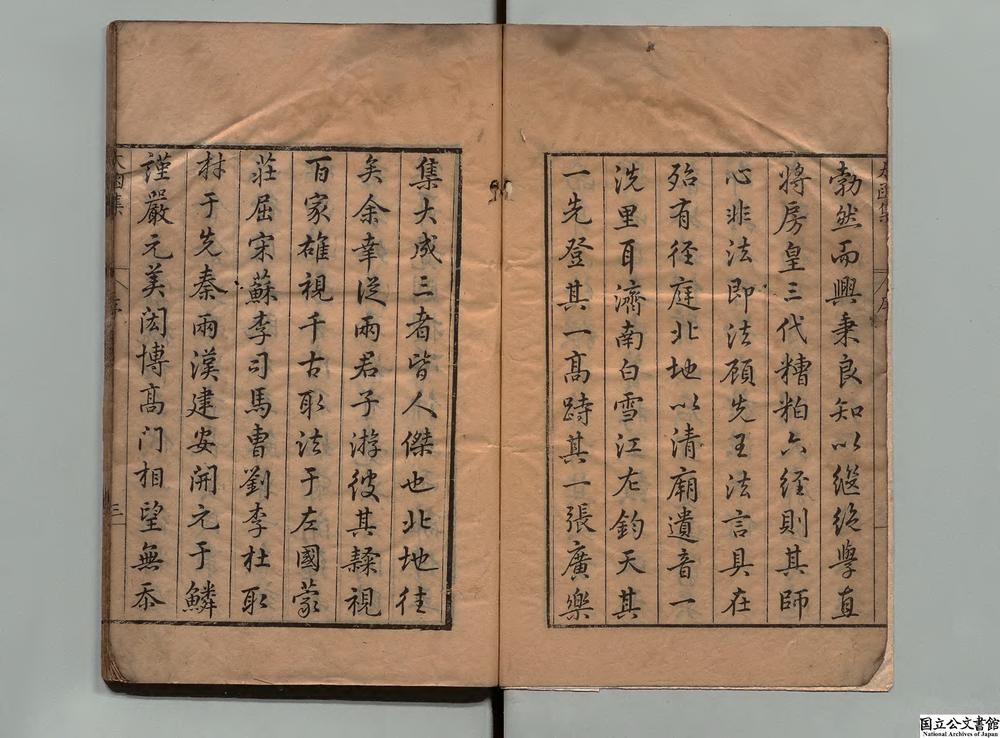 勃然而興秉良知以繼絶學直
將房皇三代糟粕六經則其師
心非法即法顧先王法言具在
殆有徑庭北地以清廟遺音一
洗里耳濟南白雪江左鈞天其
一先登其一高跱其一張廣樂
集大成三者皆人傑也北地往
矣余幸從兩君子游彼其鞣視
百家雄視千古取法于左國蒙
莊屈宋蘇李司馬曹劉李杜取
材于先秦兩漢建安開元于鱗
謹嚴元美閎博高門相望無忝
太函集
序
三
国立公文書館
National Archives of Japan